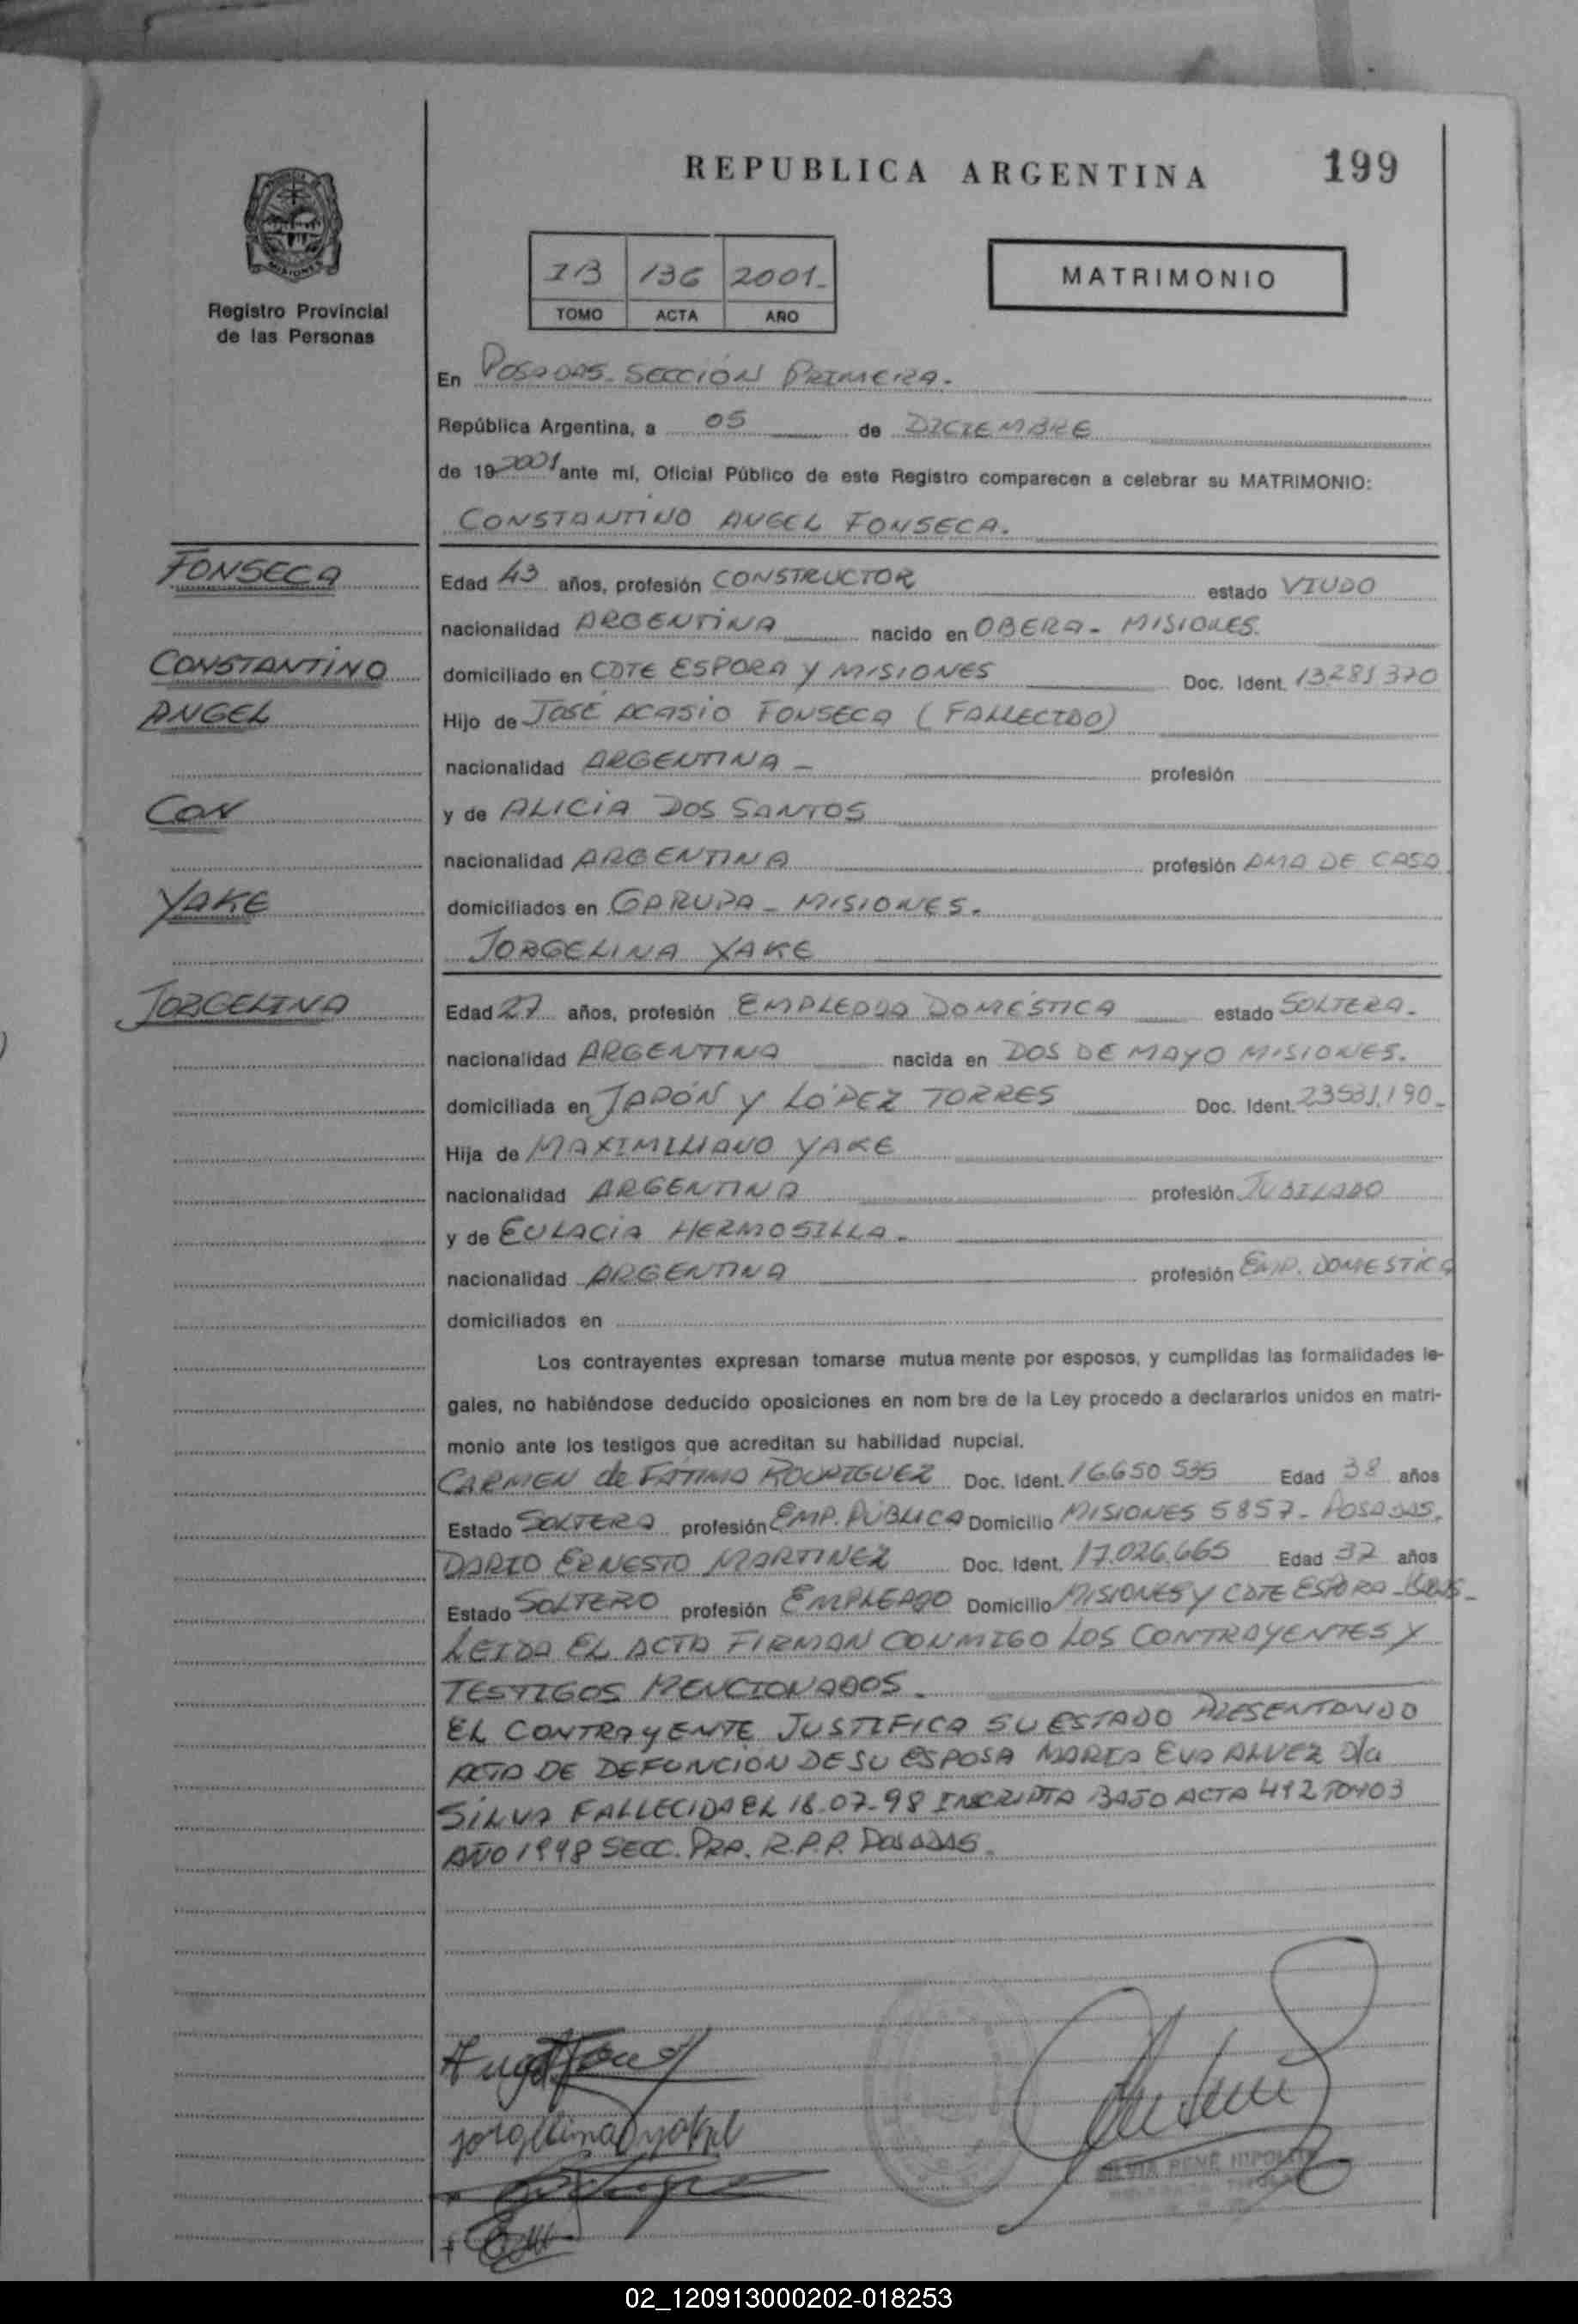 REPUBLICA ARGENTINA
199
MISIONES
Registro Provincial
de las Personas
1B 136 2001.-
TOMO ACTA AÑO
MATRIMONIO
En POSADAS - SECCIÓN PRIMERA.
República Argentina, a 05 de DICIEMBRE
de 19 2001 ante mí, Oficial Público de este Registro comparecen a celebrar su MATRIMONIO:
CONSTANTINO ANGEL FONSECA.
FONSECA
CONSTANTINO
ANGEL
CON
YAKE
JORGELINA
Edad 43 años, profesión CONSTRUCTOR estado VIUDO
nacionalidad ARGENTINA nacido en OBERA - MISIONES.
domiciliado en CDTE ESPORA Y MISIONES Doc. Ident. 13.281.370
Hijo de JOSÉ ACASIO FONSECA (FALLECIDO)
nacionalidad ARGENTINA - profesión
y de ALICIA DOS SANTOS
nacionalidad ARGENTINA profesión AMA DE CASA
domiciliados en GARUPA - MISIONES.
JORGELINA YAKE
Edad 27 años, profesión EMPLEADA DOMÉSTICA estado SOLTERA.
nacionalidad ARGENTINA nacida en DOS DE MAYO MISIONES.
domiciliada en JAPÓN Y LÓPEZ TORRES Doc. Ident. 23.531.190.
Hija de MAXIMILIANO YAKE
nacionalidad ARGENTINA profesión JUBILADO
y de EULACIA HERMOSILLA.
nacionalidad ARGENTINA profesión EMP. DOMESTICA
domiciliados en
Los contrayentes expresan tomarse mutua mente por esposos, y cumplidas las formalidades le-
gales, no habiéndose deducido oposiciones en nom bre de la Ley procedo a declararlos unidos en matri-
monio ante los testigos que acreditan su habilidad nupcial.
CARMEN de FÁTIMA RODRIGUEZ Doc. Ident. 16.650.535 Edad 38 años
Estado SOLTERA profesión EMP. PÚBLICA Domicilio MISIONES 5857 - POSADAS.
DARIO ERNESTO MARTINEZ Doc. Ident. 17.026.665 Edad 37 años
Estado SOLTERO profesión EMPLEADO Domicilio MISIONES Y CDTE ESPORA
LEIDA EL ACTA FIRMAN CONMIGO LOS CONTRAYENTES Y
TESTIGOS MENCIONADOS.
EL CONTRAYENTE JUSTIFICA SU ESTADO PRESENTANDO
ACTA DE DEFUNCIÓN DE SU ESPOSA MARIA EVA ALVEZ Da
SILVA FALLECIDA EL 18-07-98 INSCRIPTA BAJO ACTA 492 TOMO 3
AÑO 1998 SECC. PRA. R.P.P. POSADAS.
Jorgelina Yake
SILVIA RENÉ HIPOLITO
02_120913000202-018253